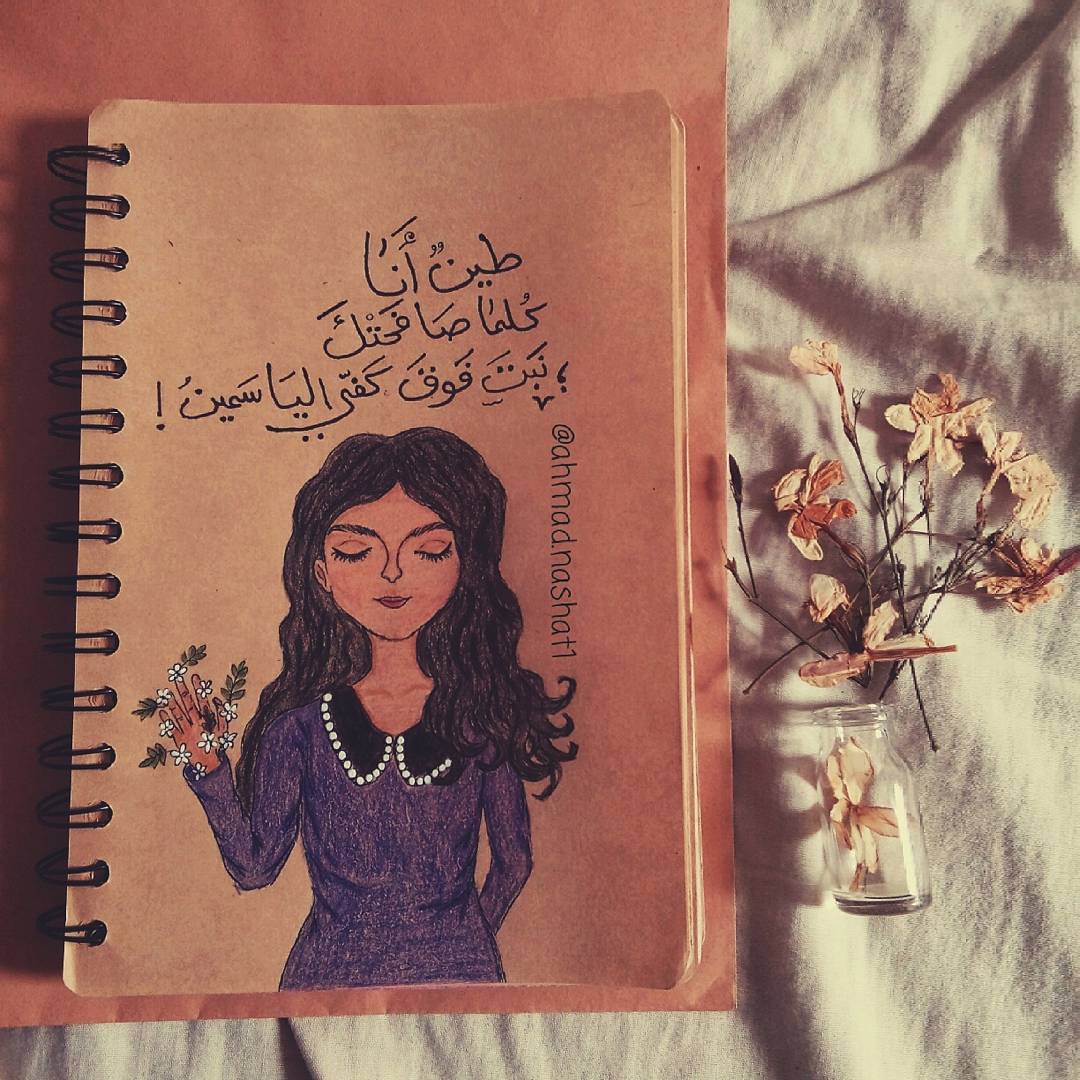 طينٌ أَنَا
كُلما صَافَحَتْكَ
؛ نَبَتَ فَوقَ كَفّي اليَاسَمينُ !
@ahmad.nashat1